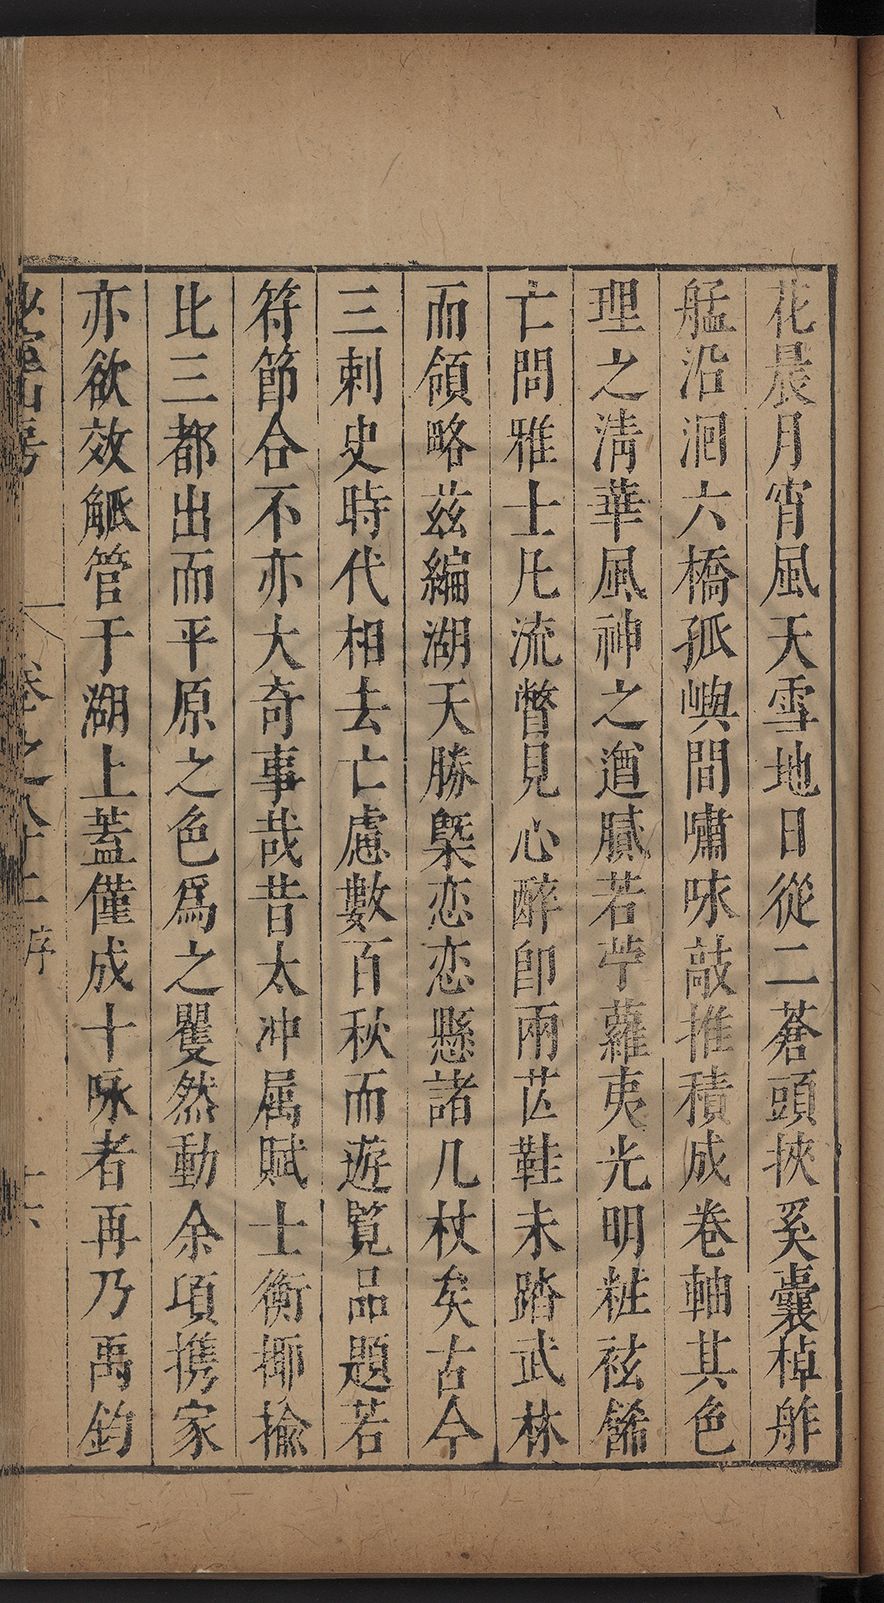 花晨月宵風天雪地日從二蒼頭挾奚囊棹舴
艋沿洄六橋孤嶼間嘯咏敲推積成卷軸其色
理之淸華風神之遒膩若苧蘿夷光明粧袨餙
亡問雅士凡流瞥見心醉卽兩芒鞋未踏武林
而領略兹編湖天勝槩恋恋懸諸几杖矣古今
三刺史時代相去亡慮數百秋而遊覧品題若
符節合不亦大奇事哉昔太冲屬賦士衡揶揄
比三都出而平原之色爲之矍然動余項携家
亦欲效觚管于湖上葢僅成十咏者再乃禹鈞
山房
卷之
序